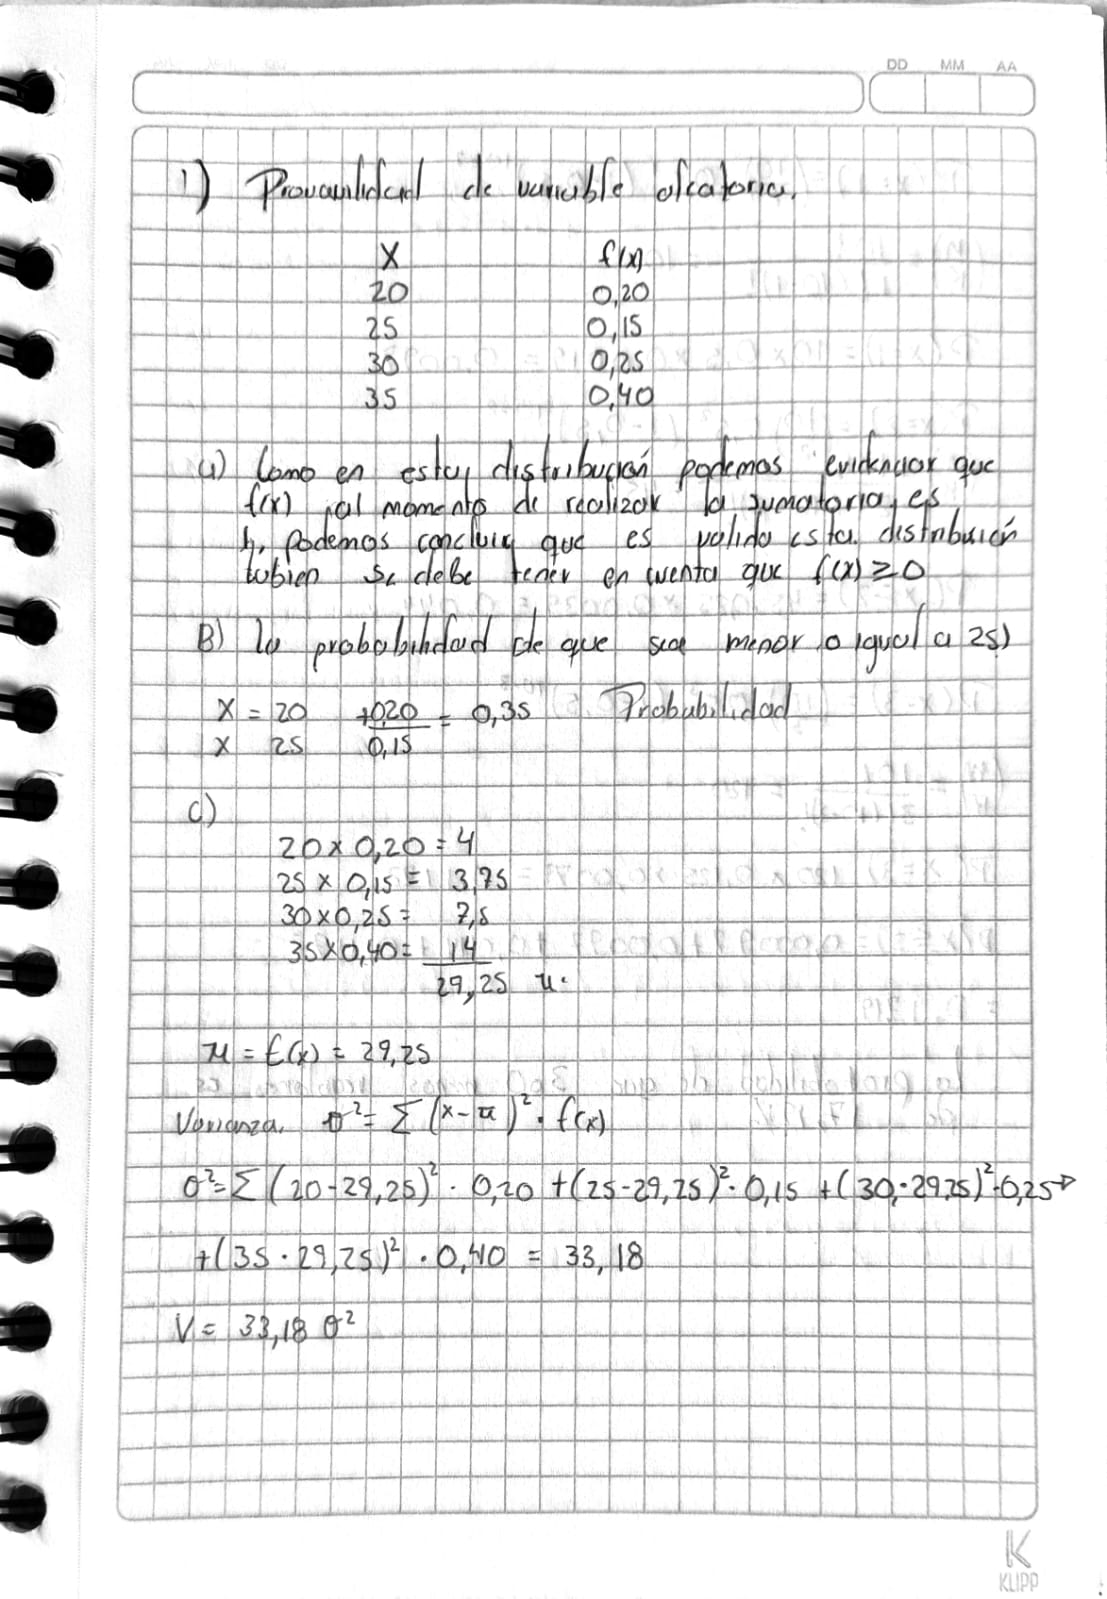 DD MM AA
1) Provavilidad de variable aleatoria.
X f(x)
20 0,20
25 0,15
30 0,25
35 0,40
a) Como en esta distribución podemos evidenciar que
f(x) al momento de realizar la sumatoria es
1, podemos concluir que es valida esta distribución
tabien se debe tener en cuenta que f(x) ≥ 0
B) la probabilidad de que sea menor o igual a 25)
X = 20 +0,20 = 0,35 Probabilidad
X 25 0,15
C)
20 x 0,20 = 4
25 x 0,15 = 3,75
30 x 0,25 = 7,5
35 x 0,40 = 14
29,25 u.
u = E(x) = 29,25
Varianza. σ² = Σ (x - u)² · f(x)
σ² = Σ (20-29,25)² · 0,20 + (25-29,25)² · 0,15 + (30-29,25)² · 0,25 →
+ (35 · 29,25)² · 0,40 = 33,18
V = 33,18 σ²
K
KLIPP